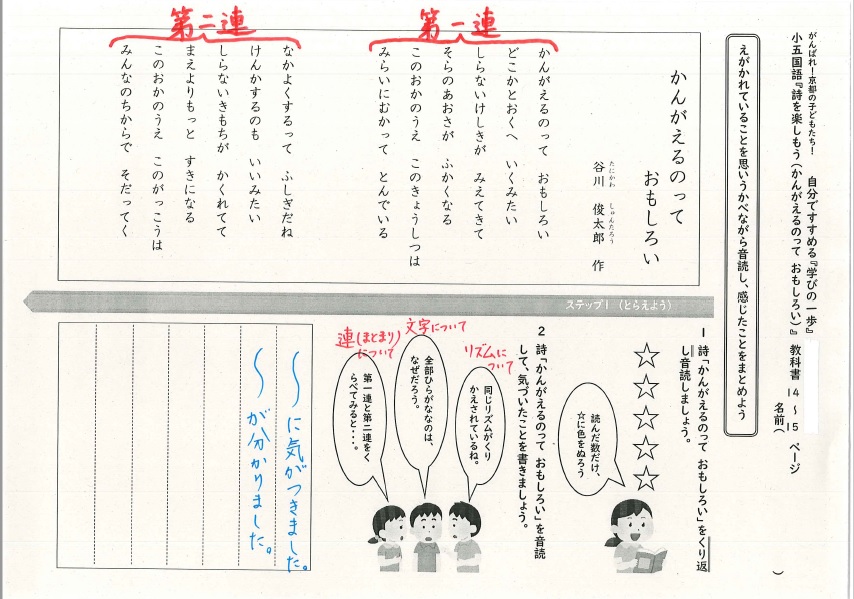 がんばれ!京都の子どもたち!
自分ですすめる『学びの一歩』
小五国語『詩を楽しもう(かんがえるのって おもしろい)』 教科書 14 ~ 15 ページ
名前( )
えがかれていることを思いうかべながら音読し、感じたことをまとめよう
第一連
第二連
かんがえるのって
おもしろい
たにかわ しゅんたろう
谷川 俊太郎 作
かんがえるのって おもしろい
どこかとおくへ いくみたい
しらないけしきが みえてきて
そらのあおさが ふかくなる
このおかのうえ このきょうしつは
みらいにむかって とんでいる
なかよくするって ふしぎだね
けんかするのも いいみたい
しらないきもちが かくれてて
まえよりもっと すきになる
このおかのうえ このがっこうは
みんなのちからで そだってく
ステップ1 (とらえよう)
1 詩「かんがえるのって おもしろい」をくり返
し音読しましょう。
☆☆☆☆☆
読んだ数だけ、
☆に色をぬろう
2 詩「かんがえるのって おもしろい」を音読
して、気づいたことを書きましょう。
リズムに
ついて
同じリズムがくり
かえされているね。
文字について
全部ひらがななのは、
なぜだろう。
連(まとまり)
について
第一連と第二連をく
らべてみると・・・。
~に気がつきました。
~が分かりました。